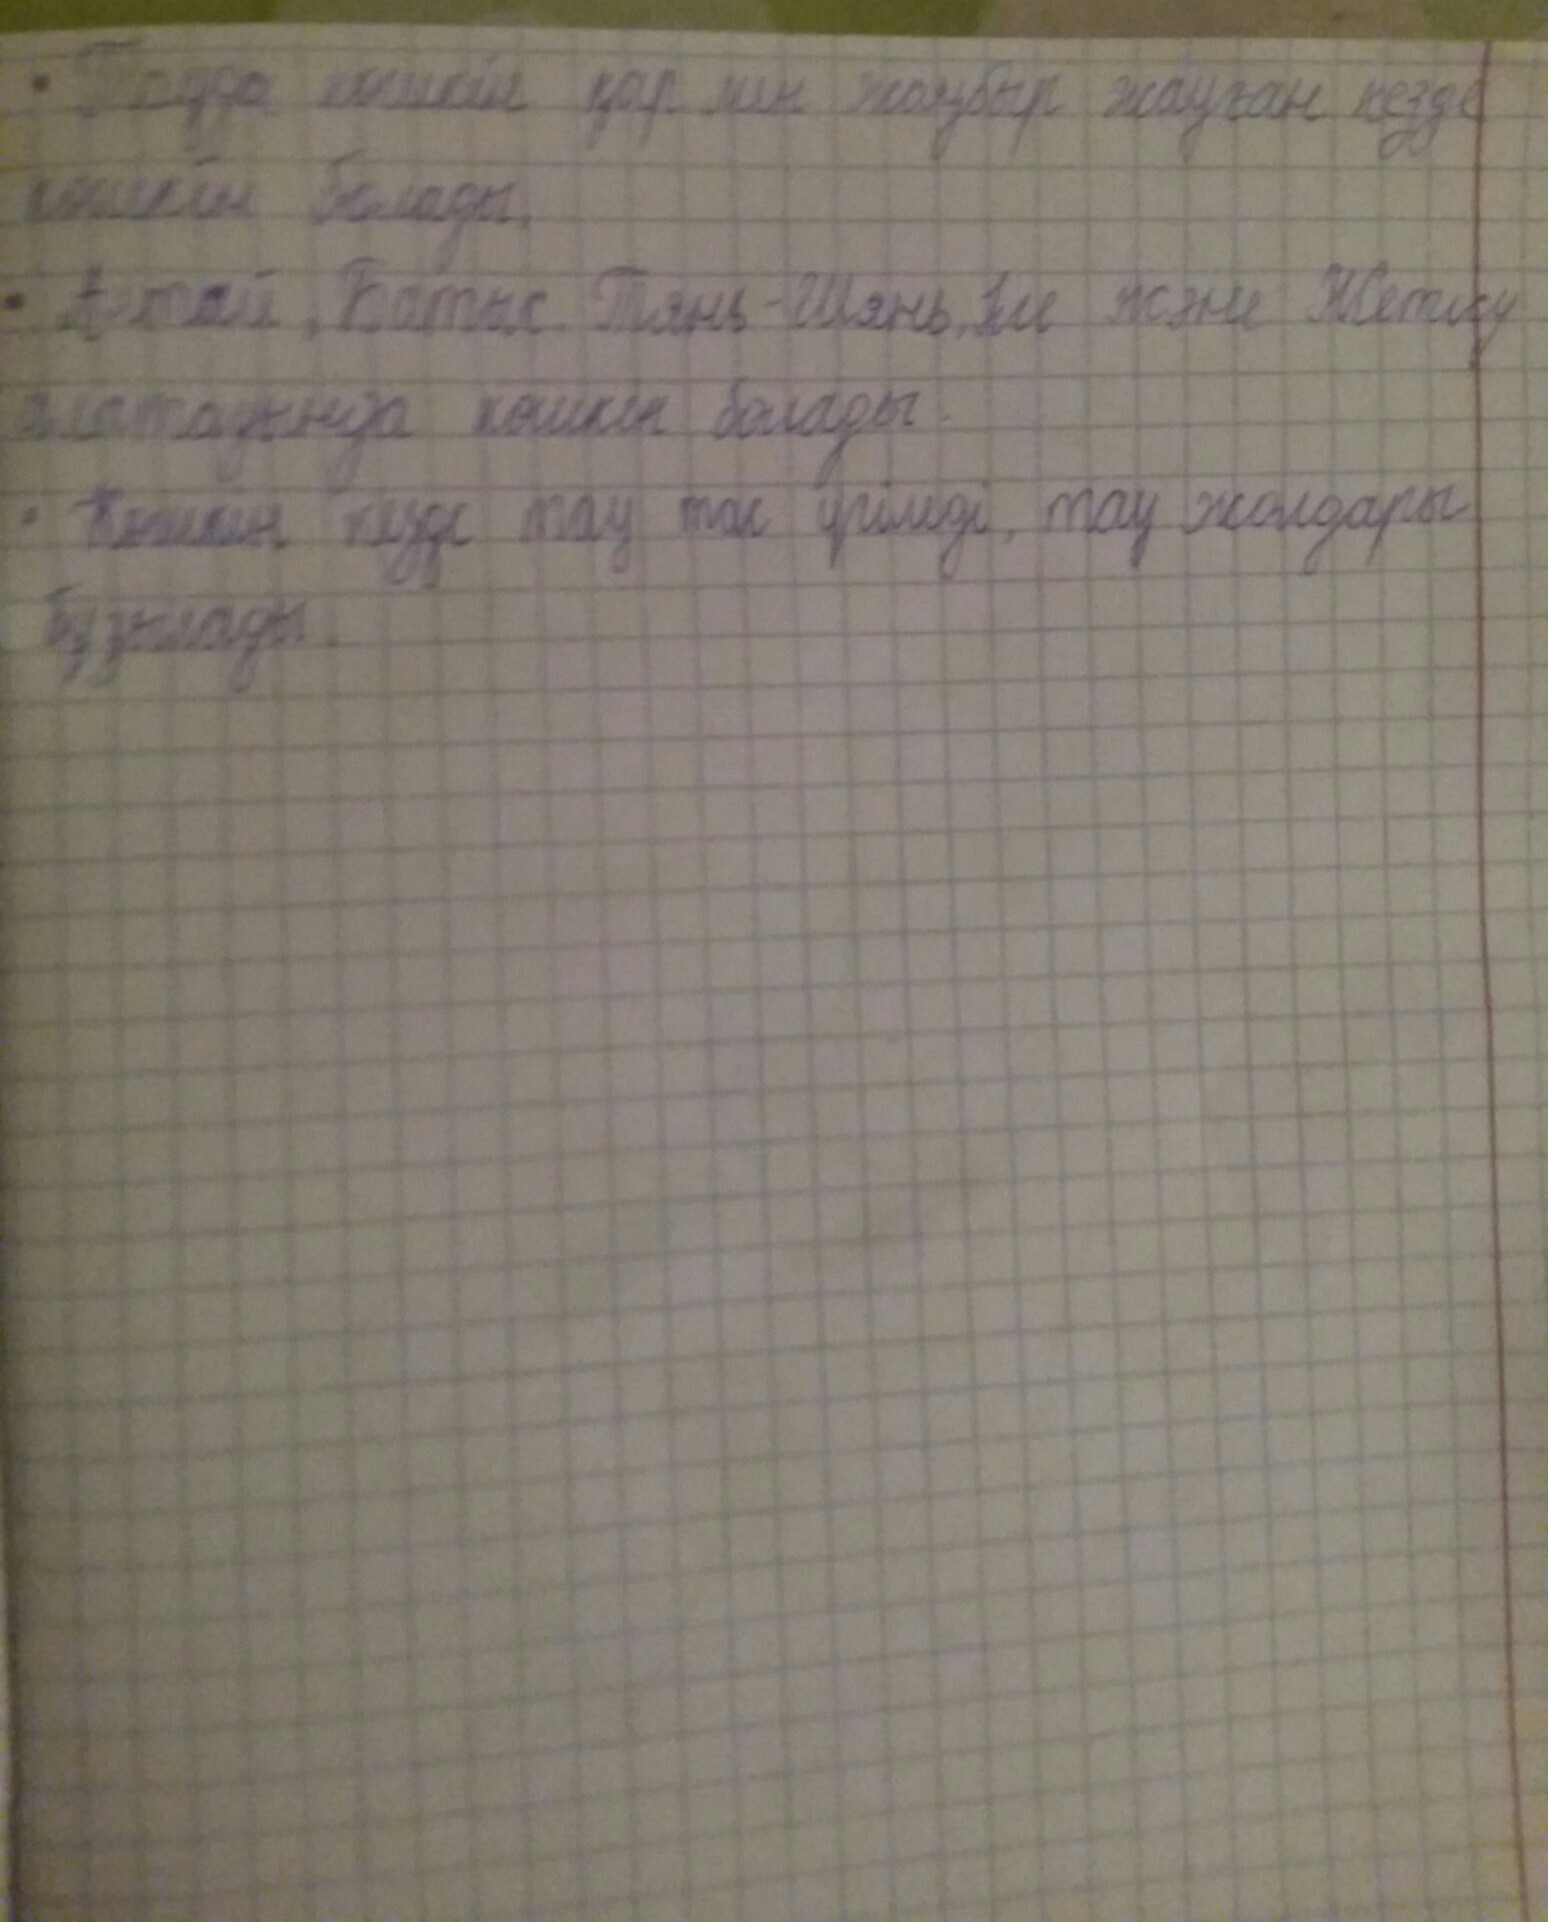 • Тауда көшкін қар мен жаңбыр жауған кезде
көшкін болады.
• Алтай, Батыс Тянь-Шянь, Іле және Жетісу
алатауында көшкін болады.
• Көшкін кезде тау тас үгіледі, тау жолдары
бұзылады.